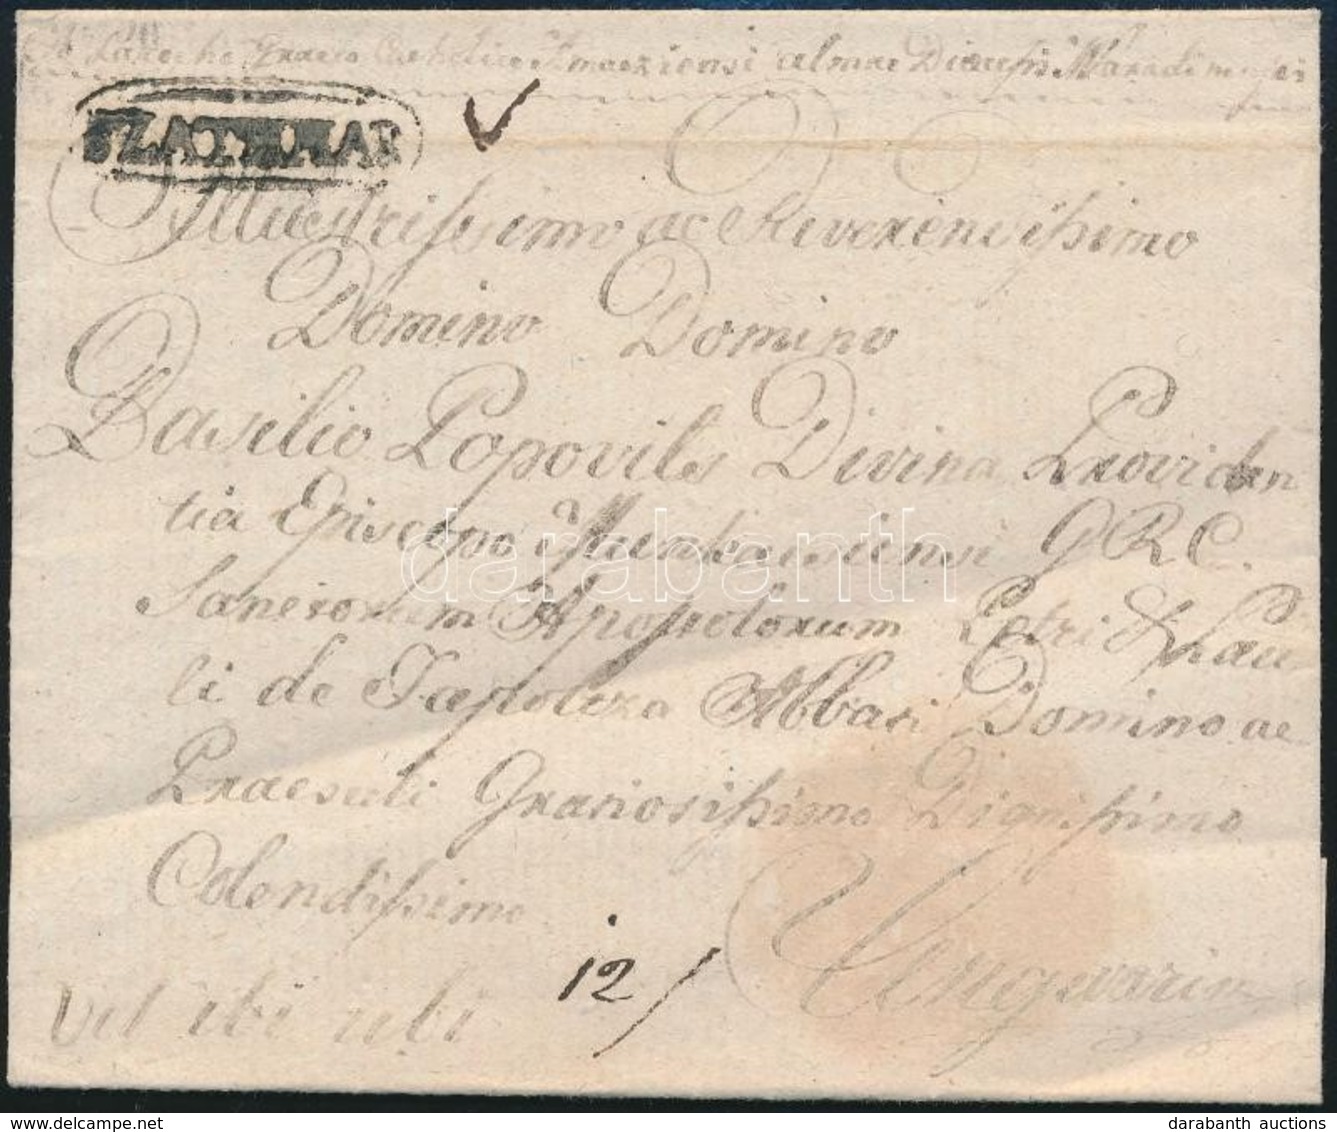 Graeco Catholica Almae Dioecesis
SZATHMAR
Illustrissimo ac Reverendissimo
Domino Domino
Basilio Popovits Divina Providen
tia Episcopo Munkacsiensi G R C.
Sanctorum Apostolorum Petri & Pau
li de Tapolcza Abbati Domino ac
Praesuli Gratiosissimo Dignissimo
Colendissimo
12
Vel ibi ubi
Ungvarini
darabanth
darabanth auctions